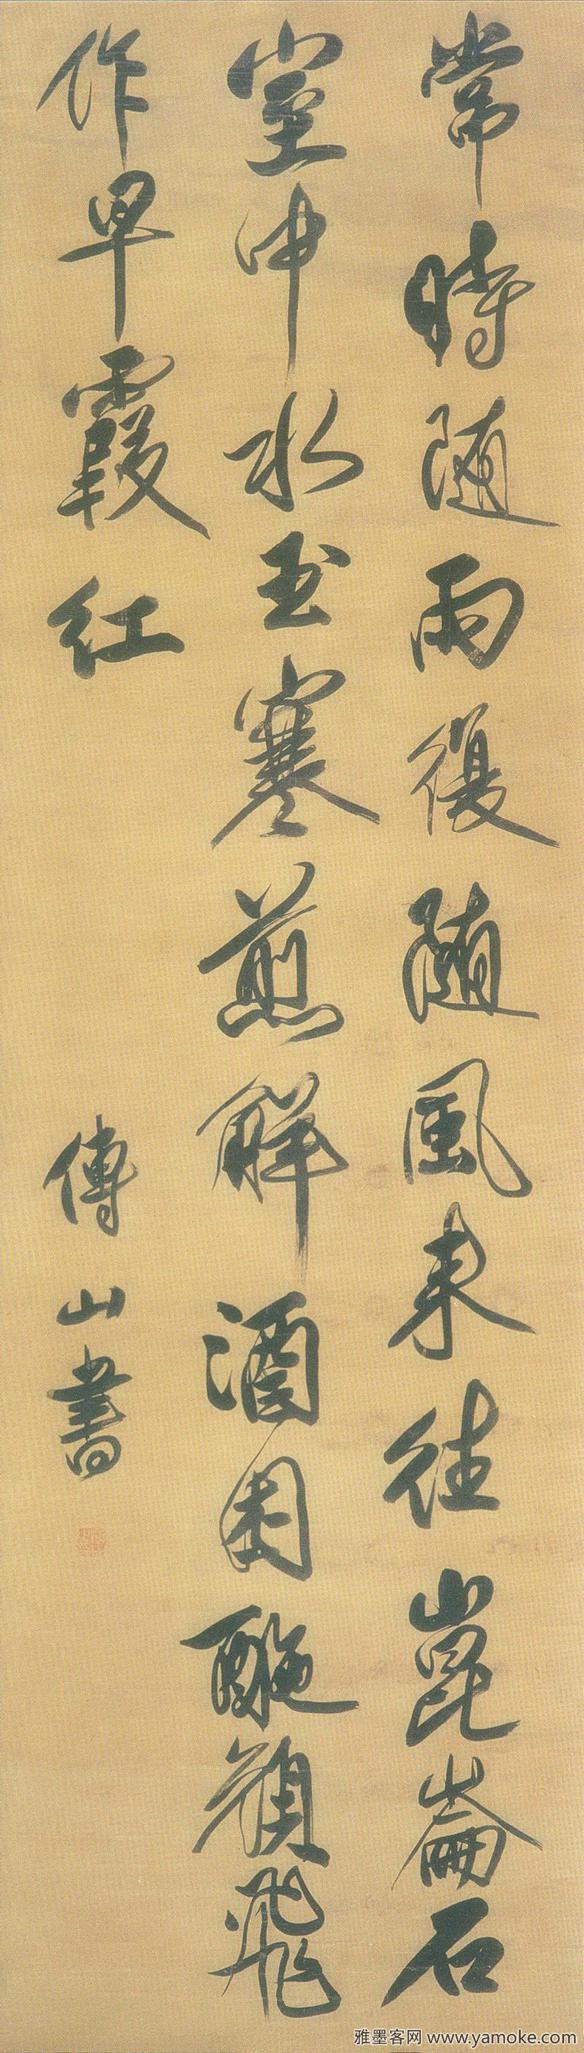 常時随雨復随風来往崑崙石
室中水玉寒煎解酒困酡顏飛
作早霞紅
傅山書
雅墨客网 www.yamoke.com